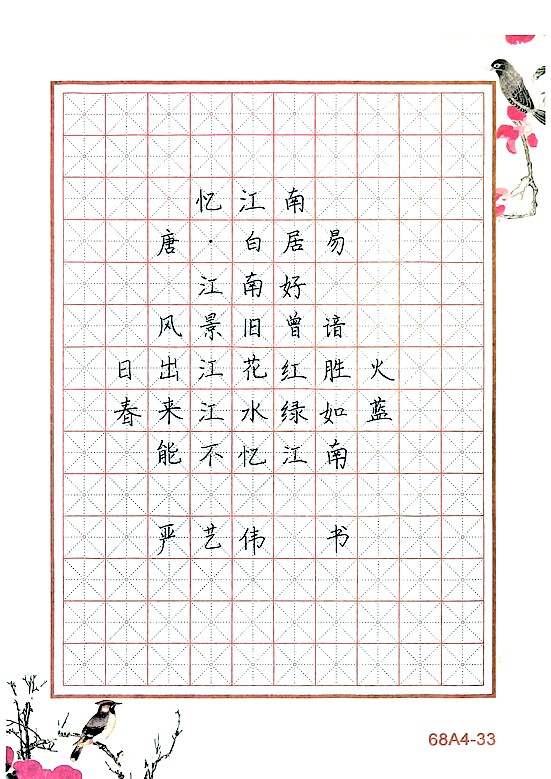 忆江南
唐·白居易
江南好
风景旧曾谙
日出江花红胜火
春来江水绿如蓝
能不忆江南
严艺伟 书
68A4-33